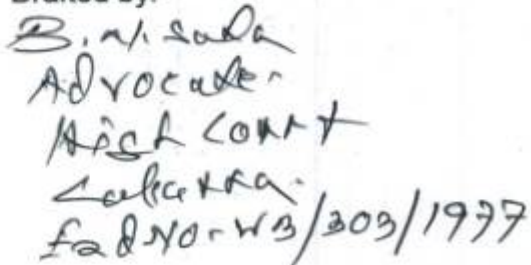 Drafted by:
B. N. Saha
Advocate
High Court
Calcutta.
End NO-WB/303/1977